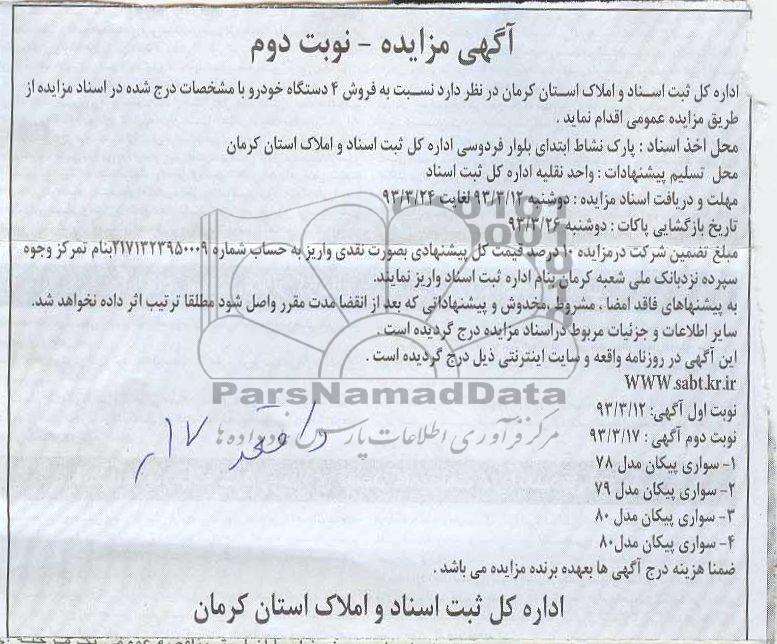 آگهی مزایده - نوبت دوم
اداره کل ثبت اسناد و املاک استان کرمان در نظر دارد نسبت به فروش ۴ دستگاه خودرو با مشخصات درج شده در اسناد مزایده از
طریق مزایده عمومی اقدام نماید .
محل اخذ اسناد : پارک نشاط ابتدای بلوار فردوسی اداره کل ثبت اسناد و املاک استان کرمان
محل تسلیم پیشنهادات : واحد نقلیه اداره کل ثبت اسناد
مهلت و دریافت اسناد مزایده : دوشنبه ۹۳/۳/۱۲ لغایت ۹۳/۳/۲۴
تاریخ بازگشایی پاکات : دوشنبه ۹۳/۳/۲۶
مبلغ تضمین شرکت درمزایده ۱۰ درصد قیمت کل پیشنهادی بصورت نقدی واریز به حساب شماره ۲۱۷۱۳۲۳۹۵۰۰۰۹بنام تمرکز وجوه
سپرده نزدبانک ملی شعبه کرمان بنام اداره ثبت اسناد واریز نمایند.
به پیشنهاهای فاقد امضا ، مشروط ،مخدوش و پیشنهاداتی که بعد از انقضا مدت مقرر واصل شود مطلقا ترتیب اثر داده نخواهد شد.
سایر اطلاعات و جزئیات مربوط دراسناد مزایده درج گردیده است .
این آگهی در روزنامه واقعه و سایت اینترنتی ذیل درج گردیده است .
ParsNamadData
WWW.sabt.kr.ir
نوبت اول آگهی: ۹۳/۳/۱۲
نوبت دوم آگهی : ۹۳/۳/۱۷
مرکز فرآوری اطلاعات پارس نماد داده ها
۱۷
۱- سواری پیکان مدل ۷۸
۲- سواری پیکان مدل ۷۹
۳- سواری پیکان مدل ۸۰
۴- سواری پیکان مدل۸۰
ضمنا هزینه درج آگهی ها بعهده برنده مزایده می باشد .
اداره کل ثبت اسناد و املاک استان کرمان